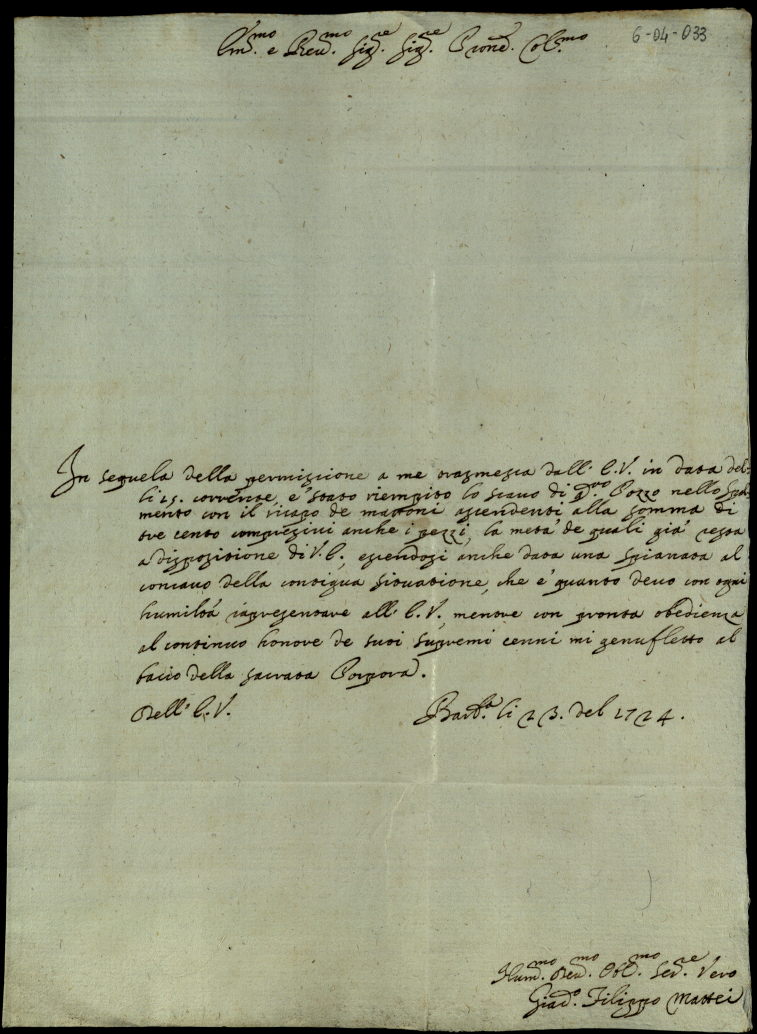 Em.mo e Reu.mo Sig.re Sig.re Prone Col.mo
6-04-033
In sequela della permissione a me trasmessa dall' E.V. in data del-
li 15. corrente, è stato riempito lo scauo di d.o Pozzo nello
mento con il ricapo de mattoni ascendenti alla somma di
tre cento compresiui anche i pezzi, la metà de quali già resta
a disposizione di V.E., essendosi anche data una spianata al
concauo della contigua situatione, che è quanto deuo con ogni
humiltà rapresentare all' E.V., mentre con pronta obedienza
al continuo honore de suoi supremi cenni mi genufletto al
bacio della sacrata Porpora.
Dell' E.V.
Barb.a li 23. del 1724.
Hum.mo Deu.mo Obl.mo Ser.re Vero
Filippo Mattei